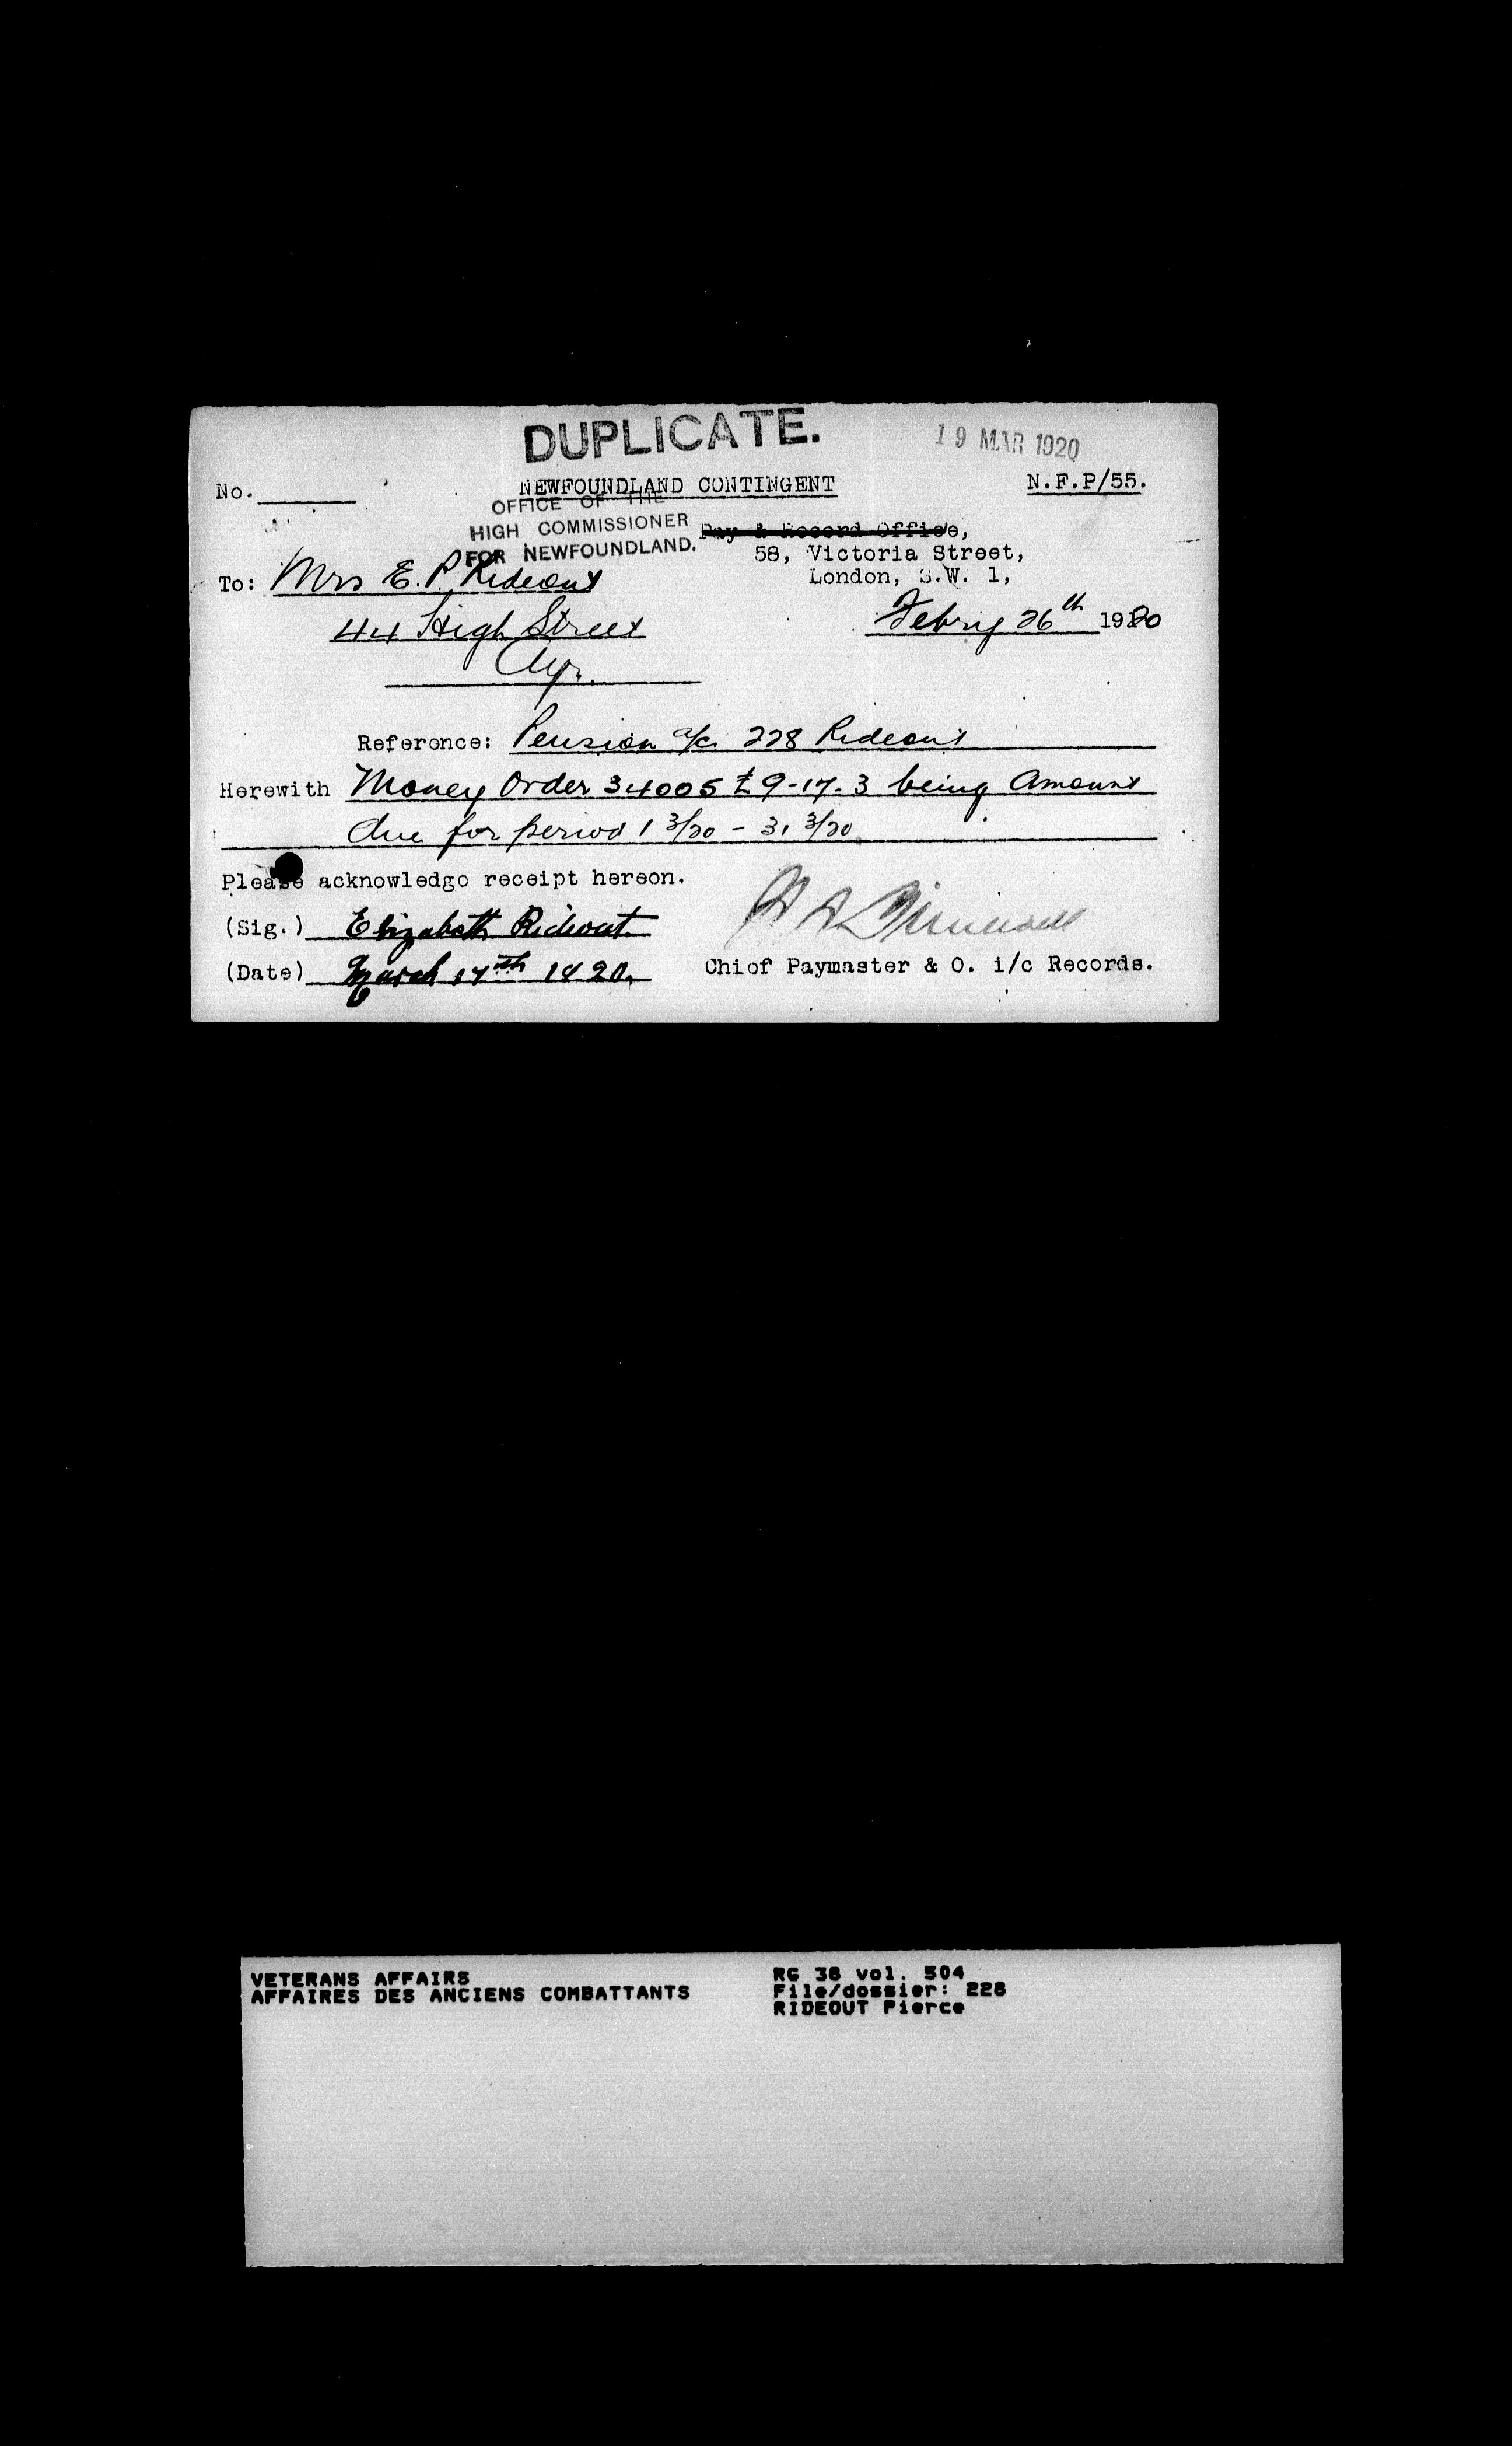 DUPLICATE.
19 MAR 1920
No.
NEWFOUNDLAND CONTINGENT
N.F.P/55.
OFFICE OF THE
HIGH COMMISSIONER
FOR NEWFOUNDLAND.
Pay & Record Office,
58, Victoria Street,
London, S.W. 1,
To: Mrs E. P. Rideout
44 High Street
Ayr.
Febry 26th 1920
Reference: Pension a/c 228 Rideout
Herewith Money Order 34005 £9-17-3 being Amount
due for period 1 3/20 - 31 3/20
Please acknowledge receipt hereon.
(Sig.) Elizabeth Rideout.
(Date) March 17th 1920.
Chief Paymaster & O. i/c Records.
VETERANS AFFAIRS
AFFAIRES DES ANCIENS COMBATTANTS
RG 38 vol. 504
File/dossier: 228
RIDEOUT Pierce